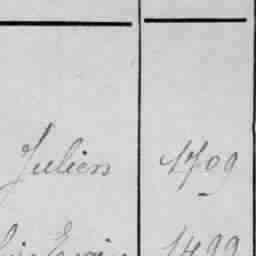 Juliers 1709
1499